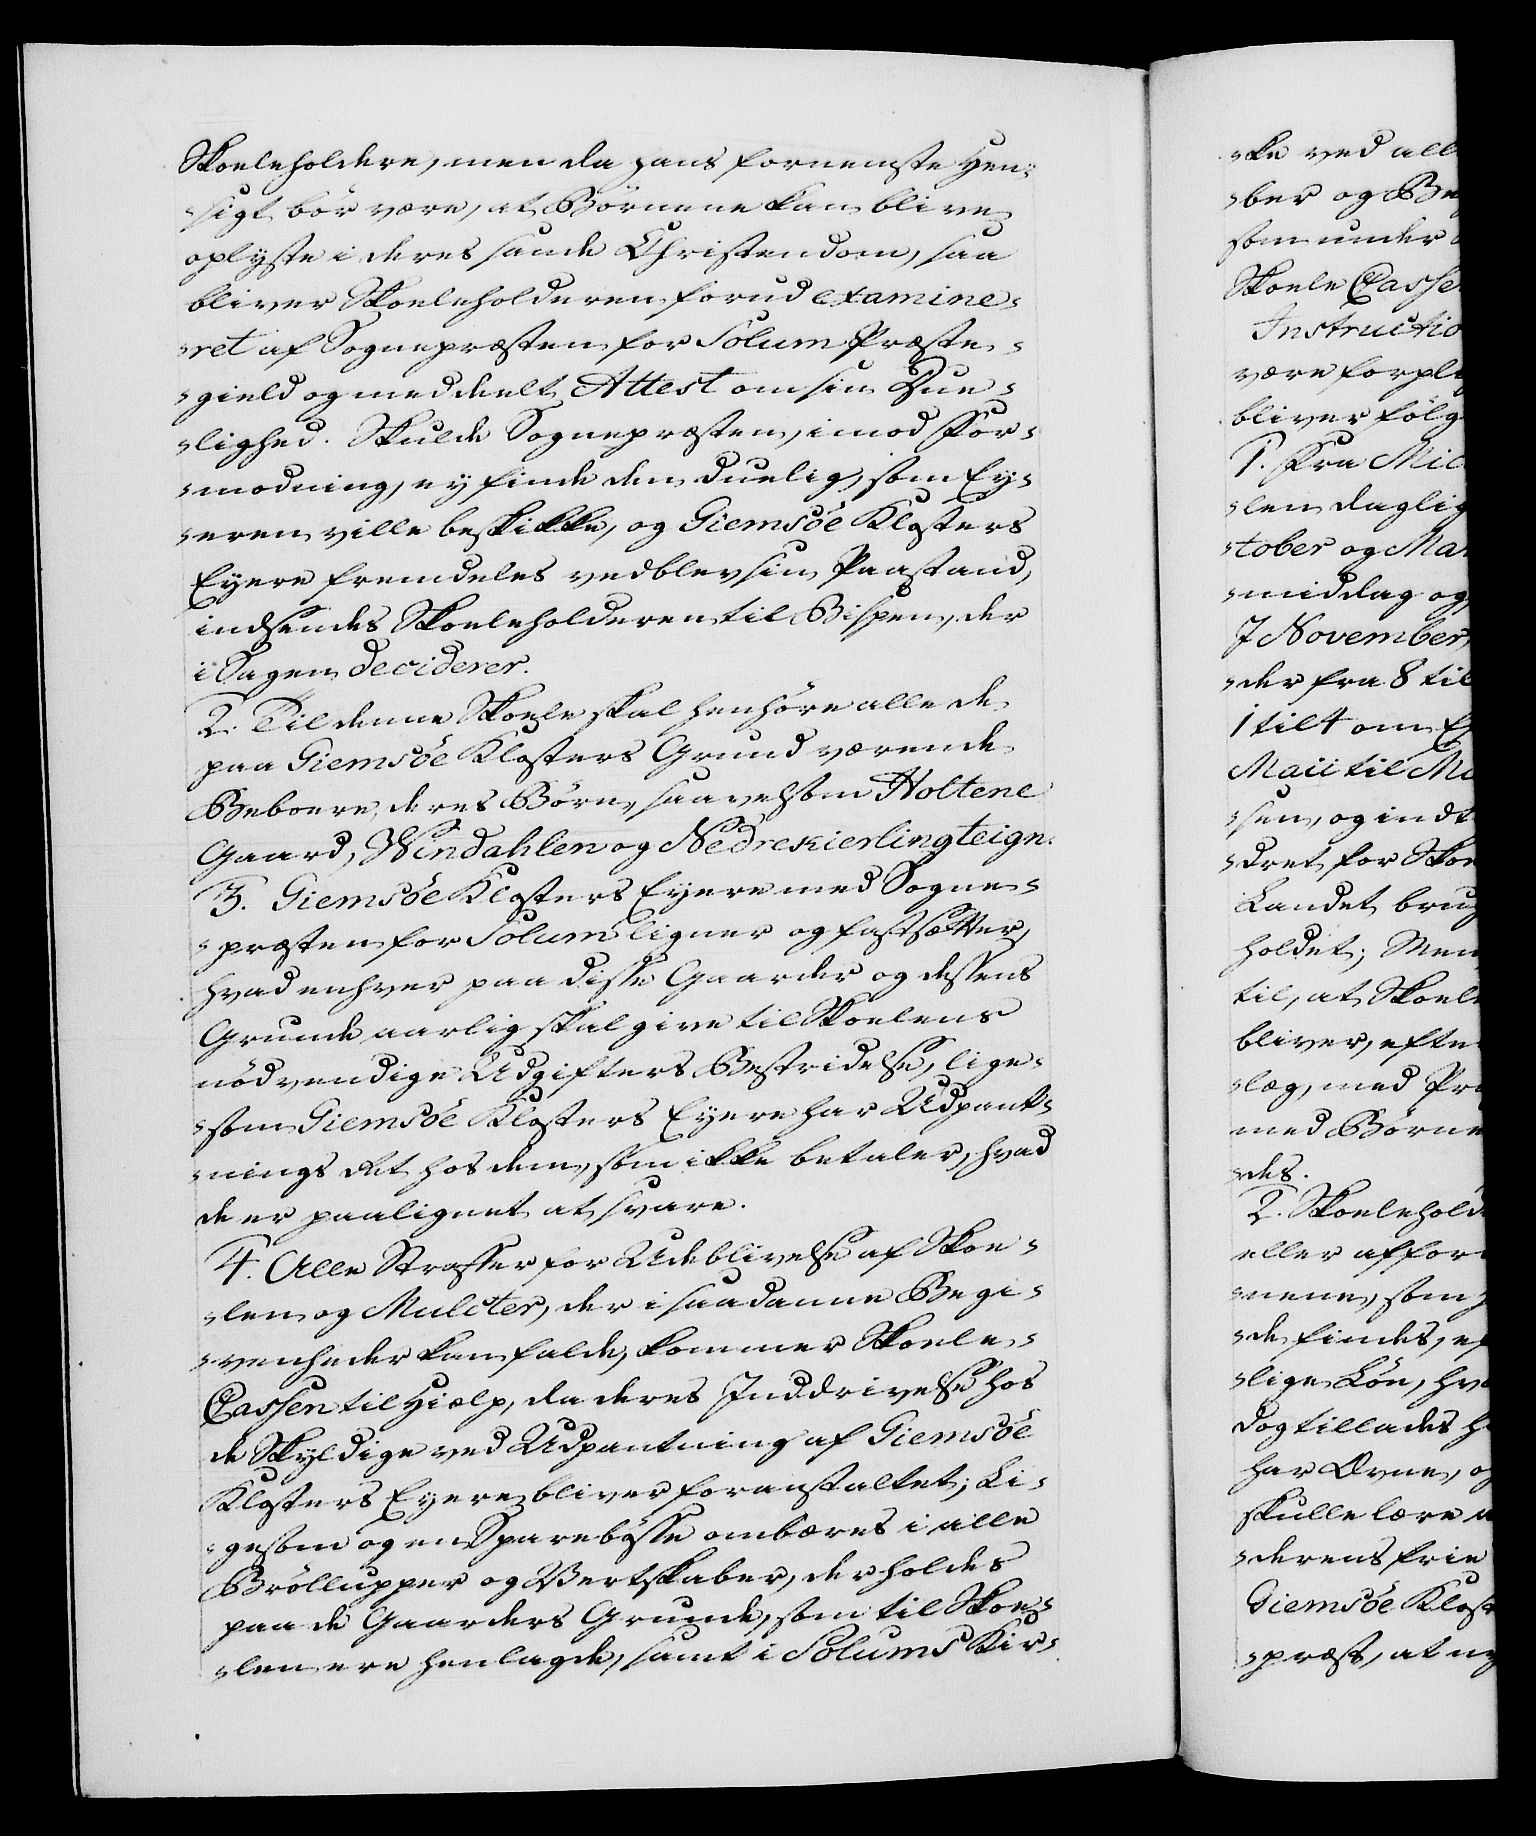 Skoeleholdere, men da hans fornemste Hen-
-sigt bör være, at Börnene kan blive
oplyste i deres sande Christendom, saa
bliver Skoeleholderen forud examine-
-ret af Sognepræsten for Solum Præste-
-gield og meddeelt Attest om sin Due-
-lighed. Skulde Sognepræsten, imod For-
-modning, ey finde den duelig, som Ey-
-eren ville beskikke, og Giemsöe Klosters
Eyere fremdeles vedblev sin Paastand,
indsendes Skoeleholderen til Bispen, der
i Sagen deciderer.
2. Til denne Skoele skal henhöre alle de
paa Giemsöe Klosters Grund værende
Beboere, deres Börn, saavelsom Holtene
Gaard, Windahlen og Nedrekierlingteign.
3. Giemsöe Klosters Eyere med Sogne-
-præsten for Solum ligner og fastsætter,
hvad enhver paa disse Gaarder og dessens
Grunde aarlig skal give til Skoelens
nödvendige Udgifters Bestridelse, lige-
-som Giemsöe Klosters Eyere har Udpant-
-nings Ret hos dem, som ikke betaler, hvad
de er paalignet at svare.
4. Alle Straffer for Udeblivelse af Skoe-
-len og Mulcter, der i saadanne Begi-
-venheder kan falde, kommer Skoele-
Cassen til Hielp, da deres Inddrivelse hos
de Skyldige ved Udpantning af Giemsöe
Klosters Eyere bliver foranstaltet; Li-
-gesom og en Sparebösse ombæres i alle
Bröllupper og Vertskaber, der holdes
paa de Gaarders Grunde, som til Skoe-
-len ere henlagde, samt i Solums Kir-
-ke ved all
-ber og Be
som under
Skoele Casse
Instructio
være forpli
bliver fölg
1. Fra Mic
-len daglig
-tober og Ma
-middag og
I November
-der fra 8 til
1 til 4 om E
Maii til M
-sen, og indt
-dret for Sko
Landet brug
holdet; Men
til, at Skoel
bliver, efte
-læg, med Pr
med Börne
-des.
2. Skoelehold
eller affor
-nene, som
-de findes, e
-lige Lön, hv
dog tillades h
har Evne, o
skulle lære
-derens frie
Giemsöe Klost
-præst, at ny